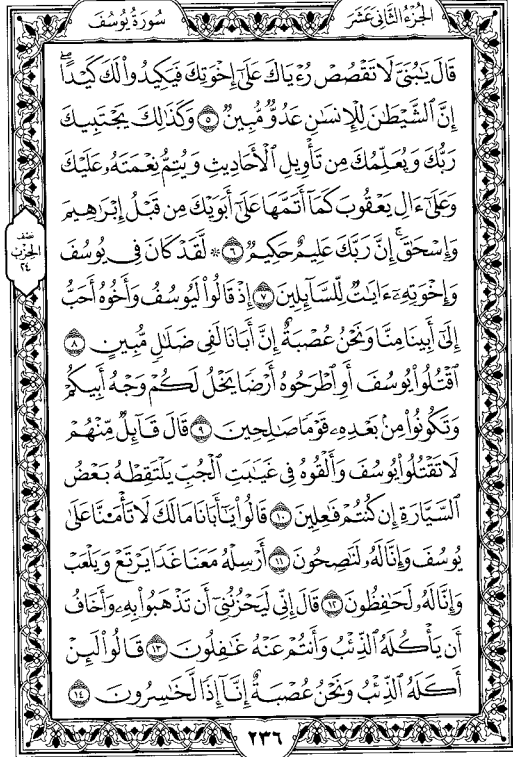 الجزء الثاني عشر
سورة يوسف
قَالَ يَٰبُنَيَّ لَا تَقْصُصْ رُءْيَاكَ عَلَىٰٓ إِخْوَتِكَ فَيَكِيدُوا۟ لَكَ كَيْدًا ۖ
إِنَّ ٱلشَّيْطَٰنَ لِلْإِنسَٰنِ عَدُوٌّ مُّبِينٌ ٥ وَكَذَٰلِكَ يَجْتَبِيكَ
رَبُّكَ وَيُعَلِّمُكَ مِن تَأْوِيلِ ٱلْأَحَادِيثِ وَيُتِمُّ نِعْمَتَهُۥ عَلَيْكَ
وَعَلَىٰٓ ءَالِ يَعْقُوبَ كَمَآ أَتَمَّهَا عَلَىٰٓ أَبَوَيْكَ مِن قَبْلُ إِبْرَٰهِيمَ
وَإِسْحَٰقَ ۚ إِنَّ رَبَّكَ عَلِيمٌ حَكِيمٌ ٦ ۞ لَّقَدْ كَانَ فِى يُوسُفَ
وَإِخْوَتِهِۦٓ ءَايَٰتٌ لِّلسَّآئِلِينَ ٧ إِذْ قَالُوا۟ لَيُوسُفُ وَأَخُوهُ أَحَبُّ
إِلَىٰٓ أَبِينَا مِنَّا وَنَحْنُ عُصْبَةٌ إِنَّ أَبَانَا لَفِى ضَلَٰلٍ مُّبِينٍ ٨
ٱقْتُلُوا۟ يُوسُفَ أَوِ ٱطْرَحُوهُ أَرْضًا يَخْلُ لَكُمْ وَجْهُ أَبِيكُمْ
وَتَكُونُوا۟ مِنۢ بَعْدِهِۦ قَوْمًا صَٰلِحِينَ ٩ قَالَ قَآئِلٌ مِّنْهُمْ
لَا تَقْتُلُوا۟ يُوسُفَ وَأَلْقُوهُ فِى غَيَٰبَتِ ٱلْجُبِّ يَلْتَقِطْهُ بَعْضُ
ٱلسَّيَّارَةِ إِن كُنتُمْ فَٰعِلِينَ ١٠ قَالُوا۟ يَٰٓأَبَانَا مَا لَكَ لَا تَأْمَ۫نَّا عَلَىٰ
يُوسُفَ وَإِنَّا لَهُۥ لَنَٰصِحُونَ ١١ أَرْسِلْهُ مَعَنَا غَدًا يَرْتَعْ وَيَلْعَبْ
وَإِنَّا لَهُۥ لَحَٰفِظُونَ ١٢ قَالَ إِنِّى لَيَحْزُنُنِىٓ أَن تَذْهَبُوا۟ بِهِۦ وَأَخَافُ
أَن يَأْكُلَهُ ٱلذِّئْبُ وَأَنتُمْ عَنْهُ غَٰفِلُونَ ١٣ قَالُوا۟ لَئِنْ
أَكَلَهُ ٱلذِّئْبُ وَنَحْنُ عُصْبَةٌ إِنَّآ إِذًا لَّخَٰسِرُونَ ١٤
نصف
الحزب
٢٤
٢٣٦